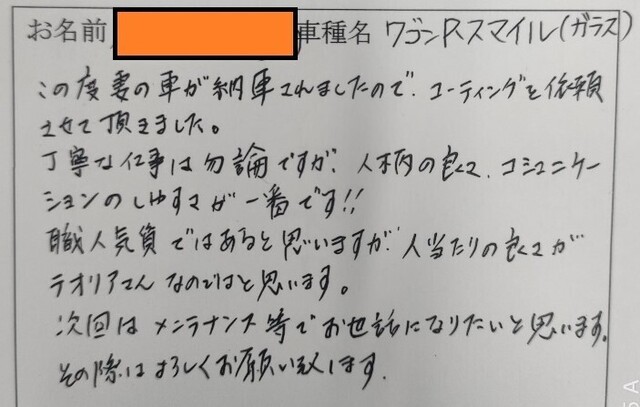 お名前 車種名 ワゴンRスマイル(ガラス)
この度妻の車が納車されましたので、コーティングを依頼
させて頂きました。
丁寧な仕事は勿論ですが、人柄の良さ、コミュニケー
ションのしやすさが一番です!!
職人気質ではあると思いますが、人当たりの良さが
テオリアさんなのではと思います。
次回はメンテナンス等でお世話になりたいと思います。
その際はよろしくお願い致します.